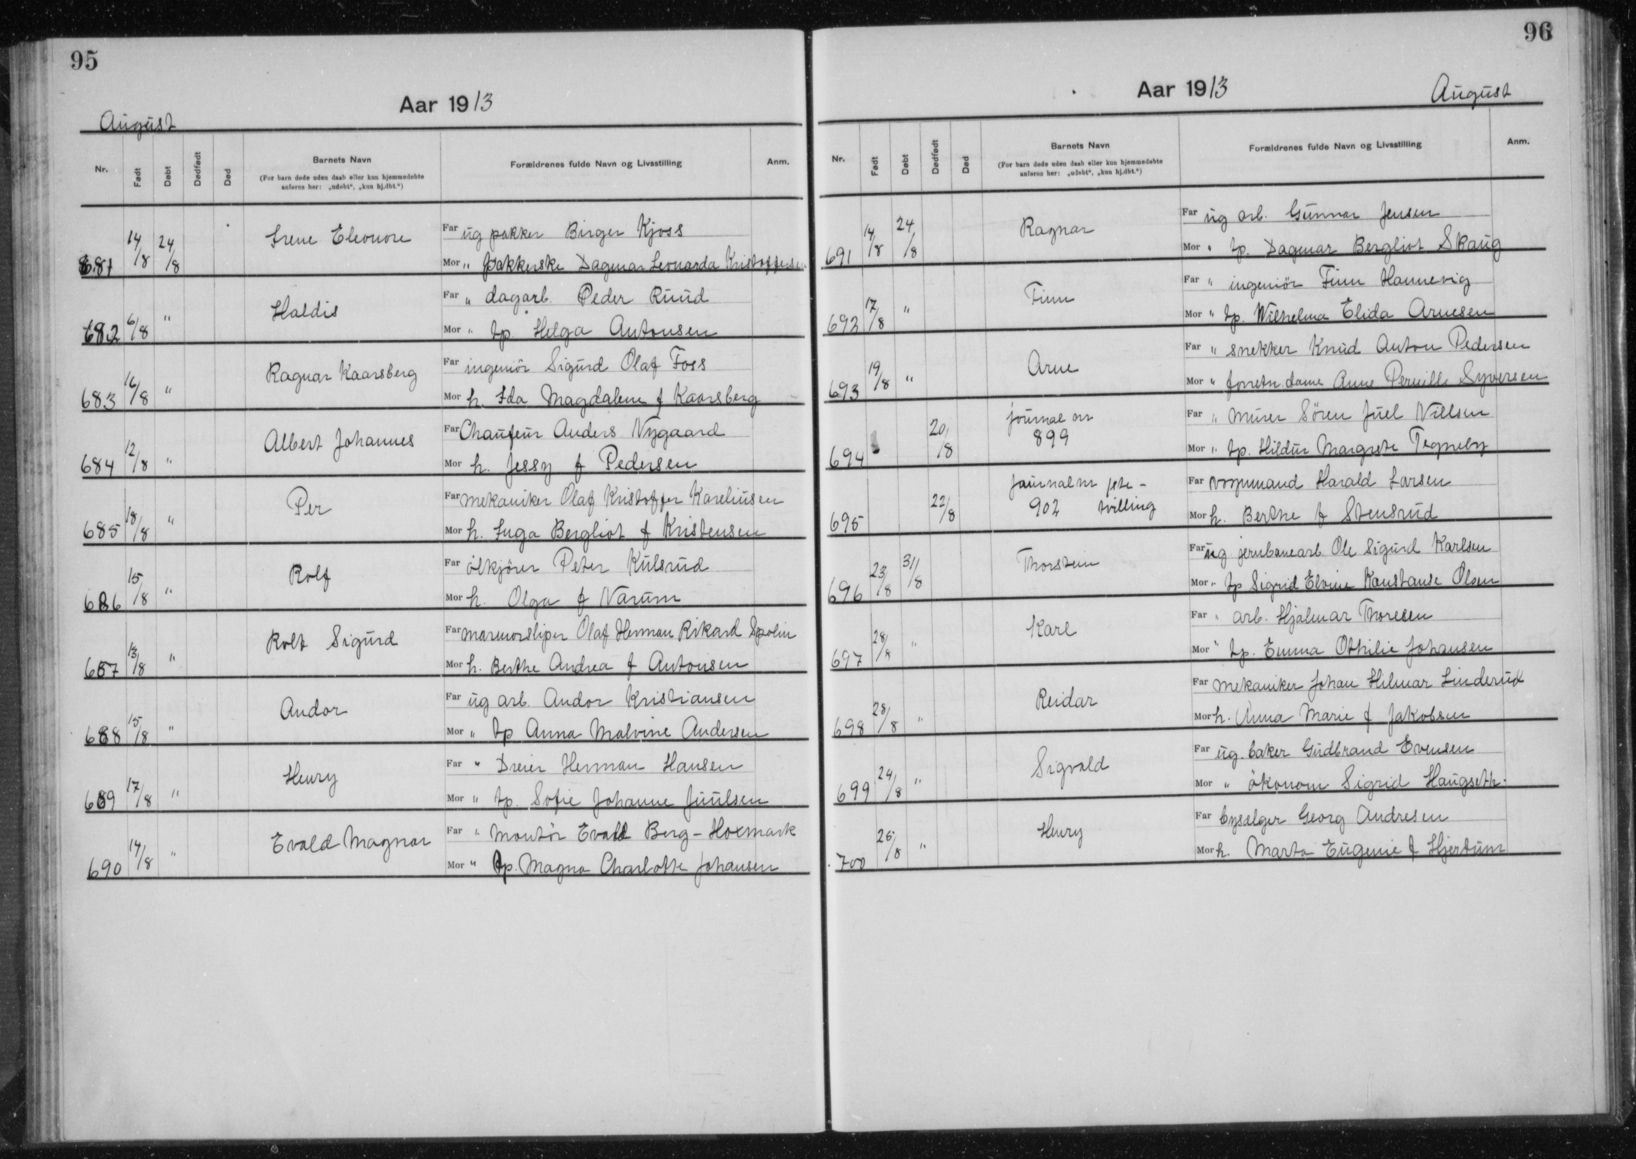 95
Aar 1913
August
Nr. Født Døbt Dødfødt Død Barnets Navn Forældrenes fulde Navn og Livsstilling Anm.
(For barn døde uden daab eller kun hjemmedøbte
anføres her: „udøbt“, „kun hj.dbt.“)
681 14/8 24/8 Irene Eleonore Far ug pakker Birger Kjoss
Mor „ pakkerske Dagmar Leonarda Kristoffersen
682 6/8 " Haldis Far „ dagarb. Peder Ruud
Mor „ tp Helga Antonsen
683 16/8 " Ragnar Kaarsberg Far ingeniør Sigurd Olaf Foss
Mor h. Ida Magdalene f Kaarsberg
684 12/8 " Albert Johannes Far Chaufeur Anders Nygaard
Mor h. Jessy f Pedersen
685 18/8 " Per Far mekaniker Olaf Kristoffer Kareliusen
Mor h. Inga Bergliot f Kristensen
686 15/8 " Rolf Far ölkjörer Peter Kulsrud
Mor h. Olga f Narum
687 13/8 " Rolf Sigurd Far marmorsliper Olaf Herman Rikard Spolin
Mor h. Berthe Andrea f Antonsen
688 15/8 " Andor Far ug arb. Andor Kristiansen
Mor „ tp Anna Malvine Andersen
689 17/8 " Henry Far " Dreier Herman Hansen
Mor „ tp. Sofie Johanne Juulsen
690 14/8 " Evald Magnar Far „ Montör Evald Berg-Hoxmark
Mor " tp. Magna Charlotte Johansen
96
Aar 1913
August
Nr. Født Døbt Dødfødt Død Barnets Navn Forældrenes fulde Navn og Livsstilling Anm.
(For barn døde uden daab eller kun hjemmedøbte
anføres her: „udøbt“, „kun hj.dbt.“)
691 14/8 24/8 Ragnar Far ug arb. Gunnar Jensen
Mor „ tp. Dagmar Bergliot Skaug
692 17/8 " Finn Far „ ingeniör Finn Hannevig
Mor " tp. Wilhelma Elida Arnesen
693 19/8 " Arne Far „ snekker Knud Anton Pedersen
Mor " forretn dame Anne Pernille Syversen
694 20/8 journal nr Far „ Murer Sören Juel Nillsen
899 Mor „ tp. Hildur Margrete Tegneby
695 22/8 journal nr Far vognmand Harald Larsen
902 tvilling Mor h. Berthe f Stensrud
696 23/8 31/8 Thorstein Far ug jernbanearb. Ole Sigurd Karlsen
Mor „ tp Sigrid Elvine Konstanse Olsen
697 28/8 " Karl Far „ arb. Hjalmar Thoresen
Mor " tp. Emma Othilie Johansen
698 28/8 " Reidar Far mekaniker Johan Hilmar Linderud
Mor h. Anna Marie f Jakobsen
699 24/8 " Sigvald Far ug. baker Gudbrand Evensen
Mor " ökonom Sigrid Haugseth.
700 26/8 " Henry Far bysælger Georg Andresen
Mor h. Marta Eugenie f Hjertum